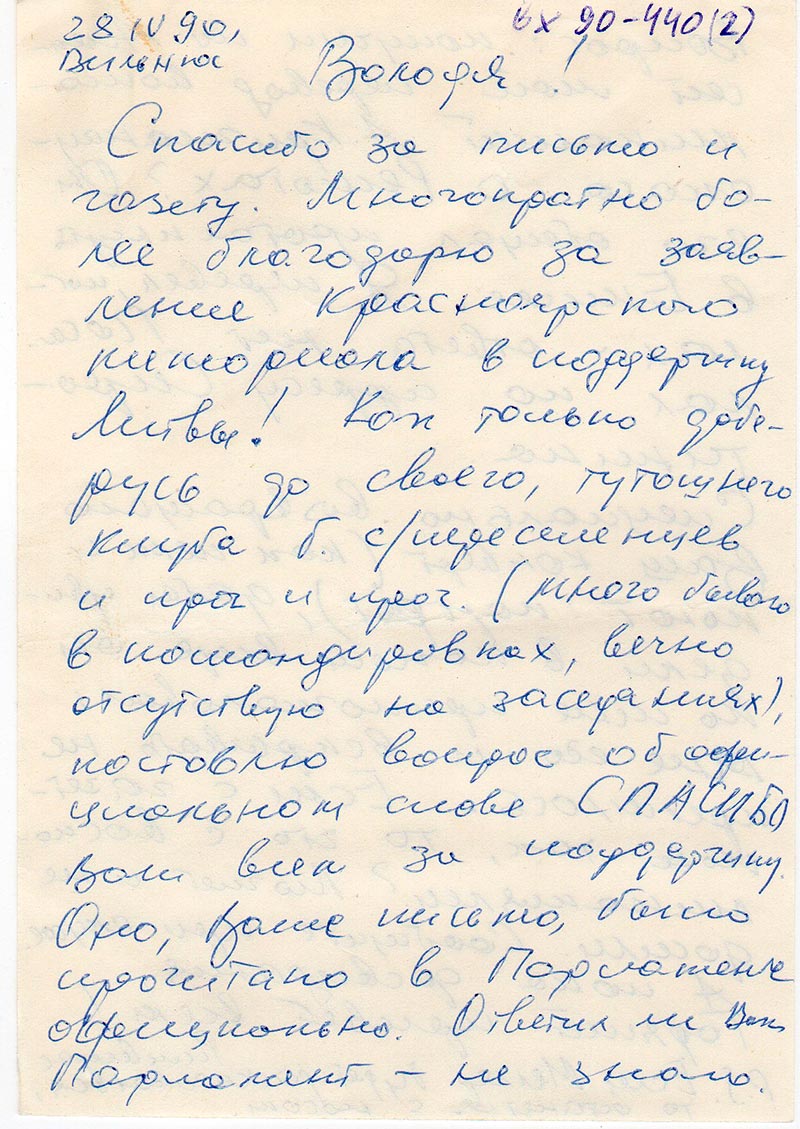 28 IV 90,
Вильнюс
вх 90-440(2)
Володя!
Спасибо за письмо и
газету. Многократно бо-
лее благодарю за заяв-
ление Красноярского
мемориала в поддержку
Литвы! Как только добе-
русь до своего, тутошнего
клуба б. с/переселенцев
и проч и проч (много бываю
в командировках, вечно
отсутствую на заседаниях),
поставлю вопрос об офи-
циальном слове СПАСИБО
Вам всем за поддержку.
Оно, Ваше письмо, было
прочитано в Парламенте
официально. Ответил ли Вам
Парламент – не знаю.